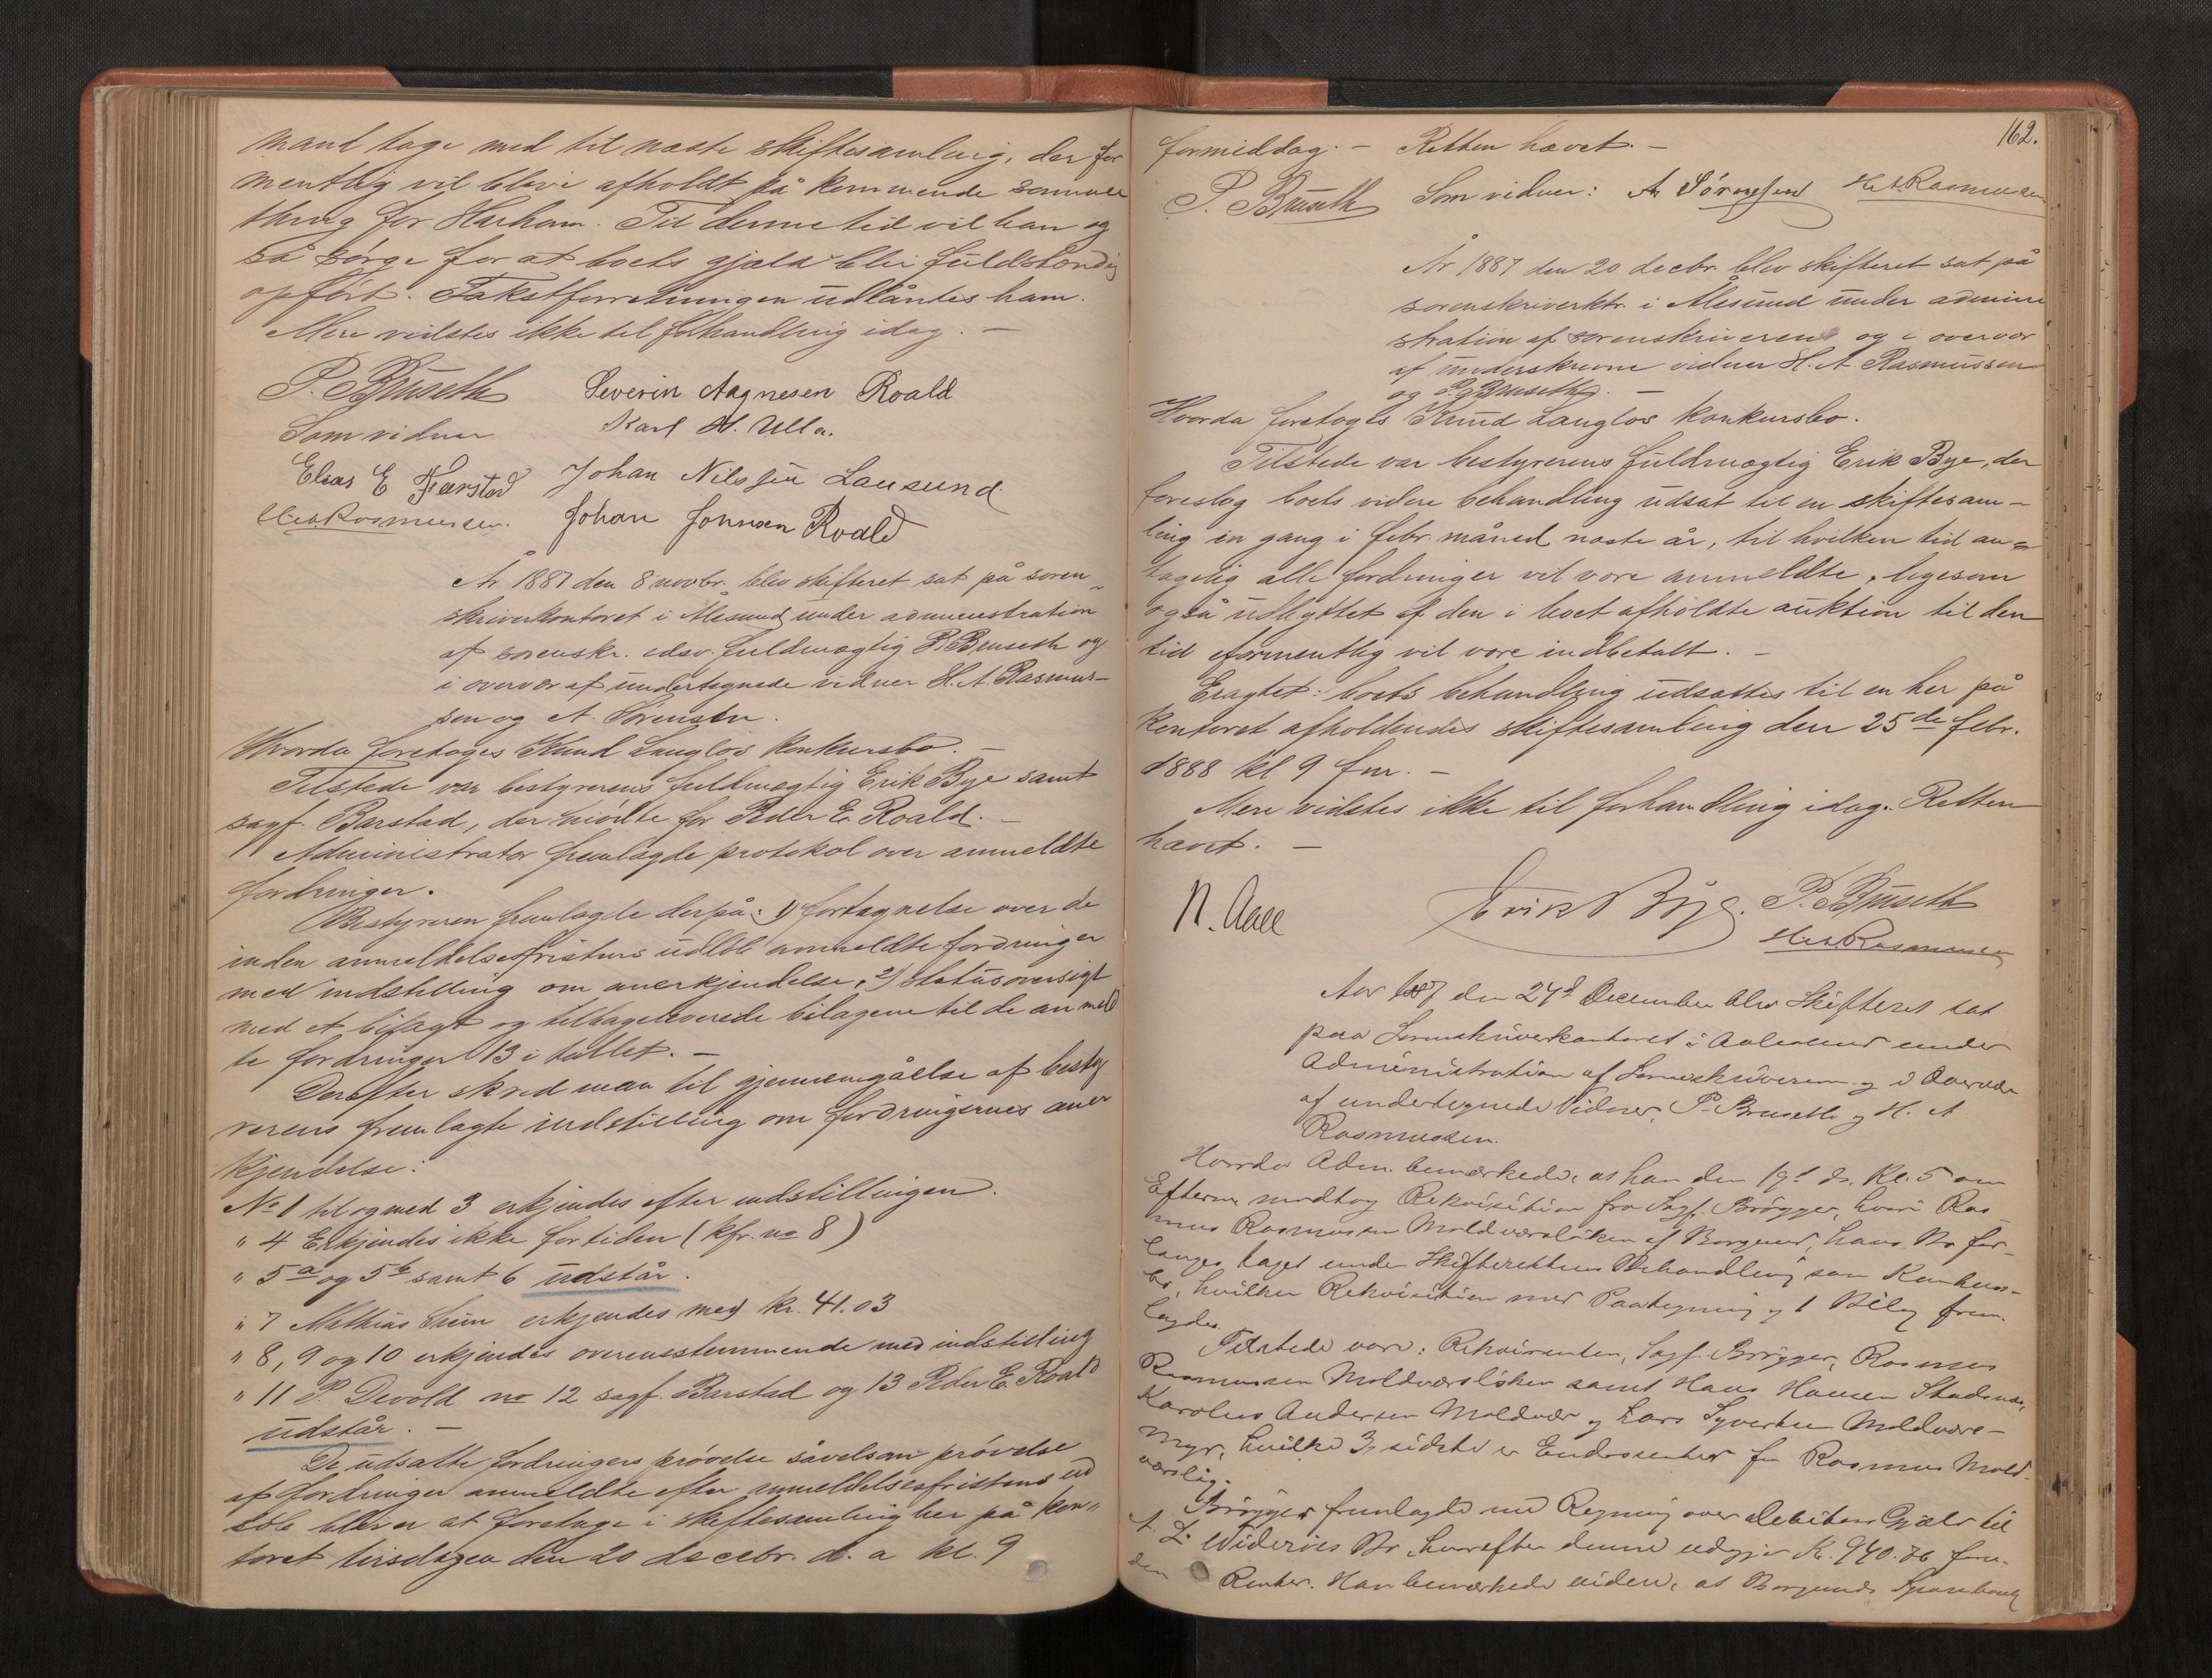 mand tage med til næste skiftesamling, der for
mentlig vil blive afholdt på kommende sommer
thing for Harham. Til denne tid vil han og
så sørge for at boets gjæld blir fuldstændig
opført. Takstforretningen udlåntes ham.
Mere vidstes ikke til forhandling idag. —
P. Bruseth Severin Aagnesen Roald
Som vidner Karl H. Ulla.
Elias E Fjærstad Johan Nilssen Lausund
H. A. Rasmussen. Johan Johnsen Roald
År 1887 den 8 novbr. blev skifteret sat på soren-
skriverkontoret i Ålesund under administration
af sorenskr. edsv. fuldmægtig P. Bruseth og
i overvær af undertegnede vidner H. A. Rasmus-
sen og A. Sørensen.
Hvorda foretoges Knud Langlos konkursbo. —
Tilstede var bestyrerens fuldmægtig Erik Bye samt
sagf. Barstad, der mødte for Peder E. Roald. —
Administrator fremlagde protokol over anmeldte
fordringer.
Bestyreren fremlagde derpå: 1) fortegnelse over de
inden anmeldelsesfristens udløb anmeldte fordringer
med indstilling om anerkjendelse, 2) statusoversigt
med et bilag og tilbageleverede bilagene til de anmeld
te fordringer 13 i tallet. —
Derefter skred man til gjennemgåelse af besty
rerens fremlagte indstilling om fordringernes aner
kjendelse:
No 1 til og med 3 erkjendes efter indstillingen.
" 4 Erkjendes ikke for tiden (kfr. no 8)
" 5a og 5b samt 6 udstår.
" 7 Mathias erkjendes med kr. 41.03
" 8, 9 og 10 erkjendes overensstemmende med indstilling
" 11 P. Devold no 12 sagf. Barstad og 13 Peder E. Roald
udstår. —
De udsatte fordringers prøvelse såvelsom prøvelse
af fordringer anmeldte efter anmeldelsesfristens ud
løb bliver at foretage i skiftesamling her på kon-
toret tirsdagen den 20 decebr. d. a kl. 9
162.
formiddag. — Retten hævet. —
P. Bruseth Som vidner: A. Sørensen H. A. Rasmussen
År 1887 den 20 decbr. blev skifteret sat på
sorenskriverktr. i Ålesund under admini
stration af sorenskriveren og i overvær
af underskrevne vidner H. A. Rasmussen
og P. Bruseth. —
Hvorda foretoges Knud Langlos konkursbo.
Tilstede var bestyrerens fuldmægtig Erik Bye, der
foreslog boets videre behandling udsat til en skiftesam-
ling en gang i febr. måned næste år, til hvilken tid an-
tagelig alle fordringer vil være anmeldte, ligesom
også udbyttet af den i boet afholdte auktion til den
tid formentlig vil være indbetalt. —
Eragtet: boets behandling udsattes til en her på
kontoret afholdendes skiftesamling den 25de febr.
1888 kl 9 fm. —
Mere vidstes ikke til forhandling idag. Retten
hævet. —
N. Aall Erik Bye. P. Bruseth
H. A. Rasmussen
Aar 1887 den 24d December blev Skifteret sat
paa Sorenskriverkontoret i Aalesund under
Administration af Sorenskriveren og i Overvær
af undertegnede Vidner, P. Bruseth og H. A.
Rasmussen.
Hvorda Adm. bemærkede, at han den 19d ds. Kl. 5 om
Efterm. modtog Rekvisition fra Sagf. Brøgger, hvori Ras-
mus Rasmussen Moldværsløken af Borgund, hans Bo for-
langes taget under Skifterettens Behandling som Konkurs-
bo, hvilken Rekvisition med Paategning og 1 Bilag frem-
lagdes.
Tilstede vare: Rekvirenten, Sagf. Brøgger, Rasmus
Rasmussen Moldværsløken samt Hans Hansen
Karolus Andersen Moldvær og Lars Syvertsen Moldvær-
myr, hvilke 3 sidste er Endossenter for Rasmus Mold-
værslig.
Brøgger fremlagde en Regning over Debitors Gjæld til
A. L. Widerøes Bo hvorefter denne udgjør Kr. 940.76 foru-
den Renter. Han bemærkede videre, at Borgunds Sparebank